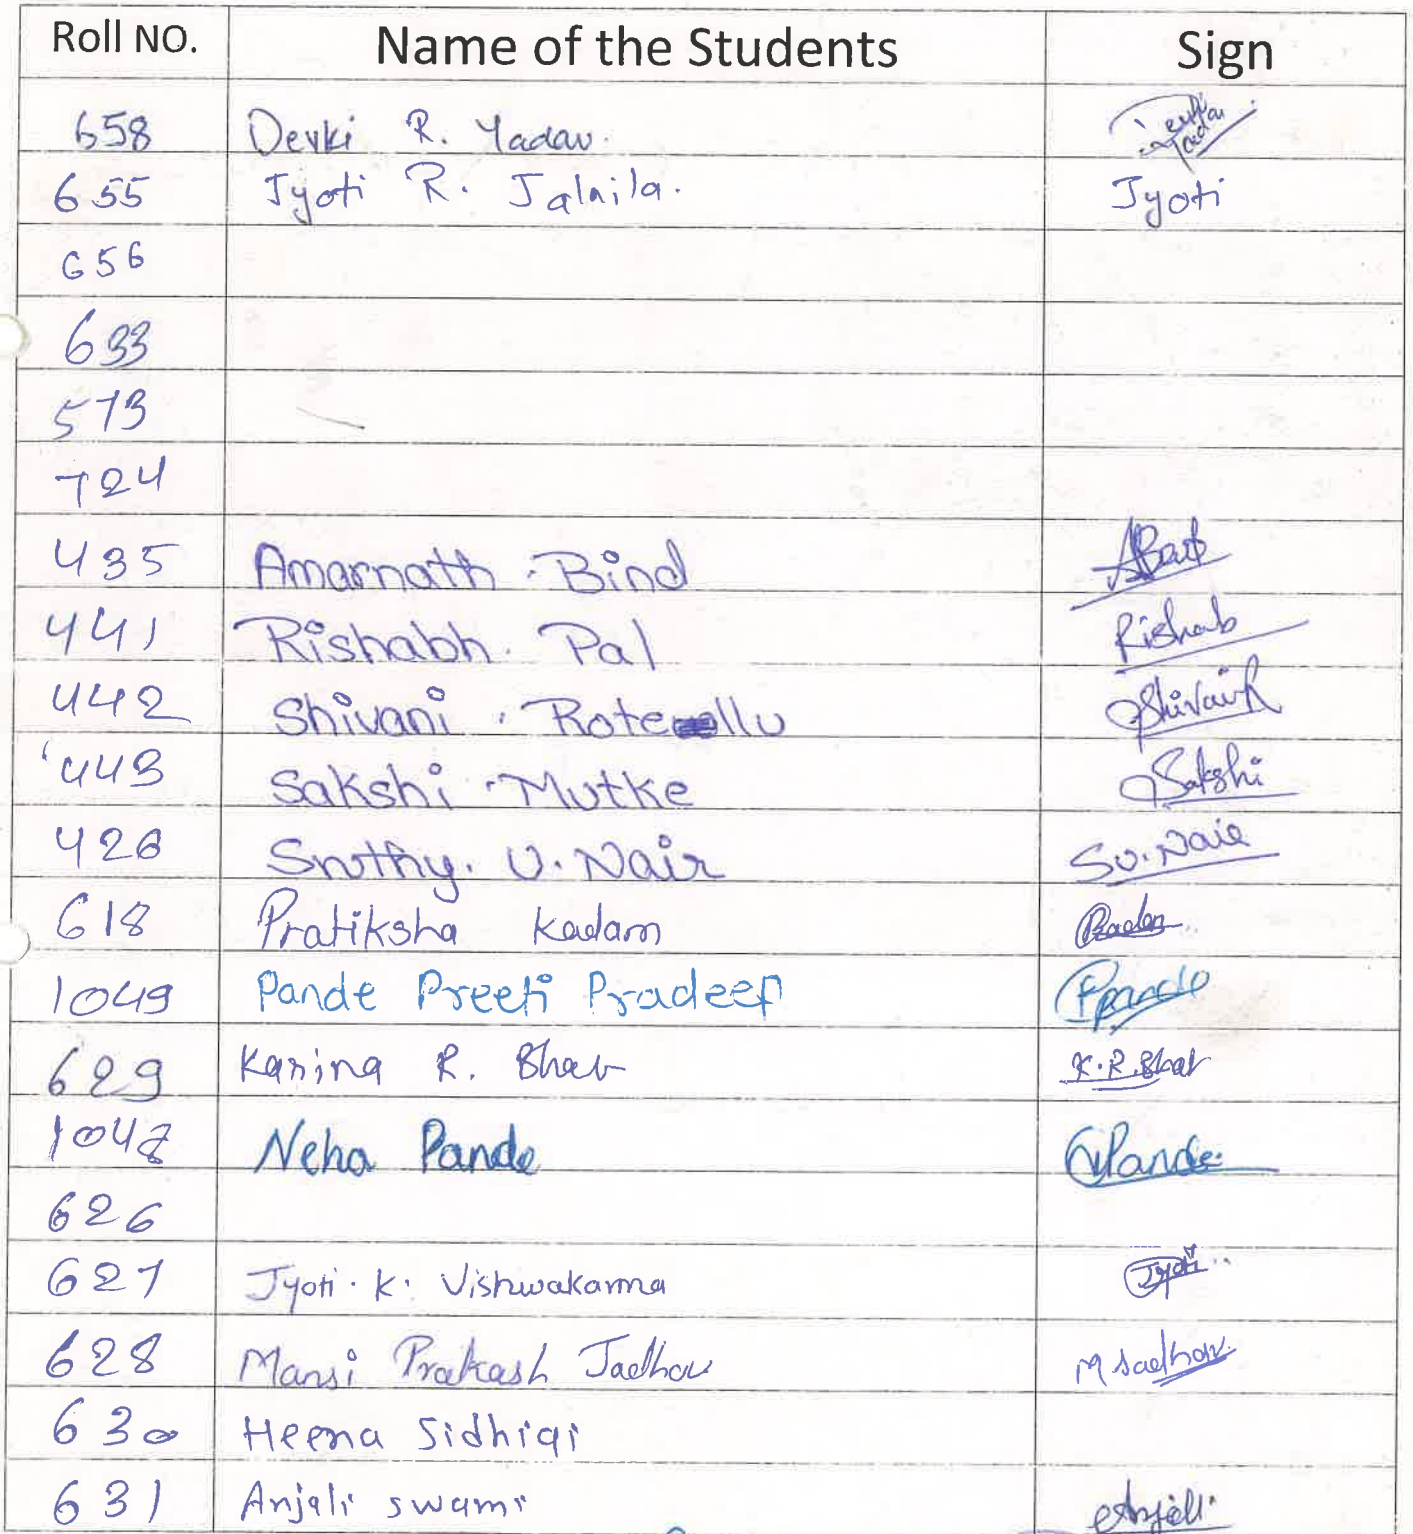 Roll NO. Name of the Students Sign
658 Devki R. Yadav. Devki Yadav
655 Jyoti R. Jalnila. Jyoti
656
633
573
724
435 Amarnath . Bind
441 Rishabh . Pal Rishab
442 Shivani . Rotellu
443 Sakshi . Mutke Sakshi
426 Sruthy. U. Nair SU. Nair
618 Pratiksha Kadam
1049 Pande Preeti Pradeep Ppande
629 Karina R. Bhat K.R.Bhat
1048 Neha Pande NPande
626
627 Jyoti . K . Vishwakarma Jyoti
628 Mansi Prakash Jadhav M Jadhav
630 Heena Sidhiqi
631 Anjali Swami Anjali